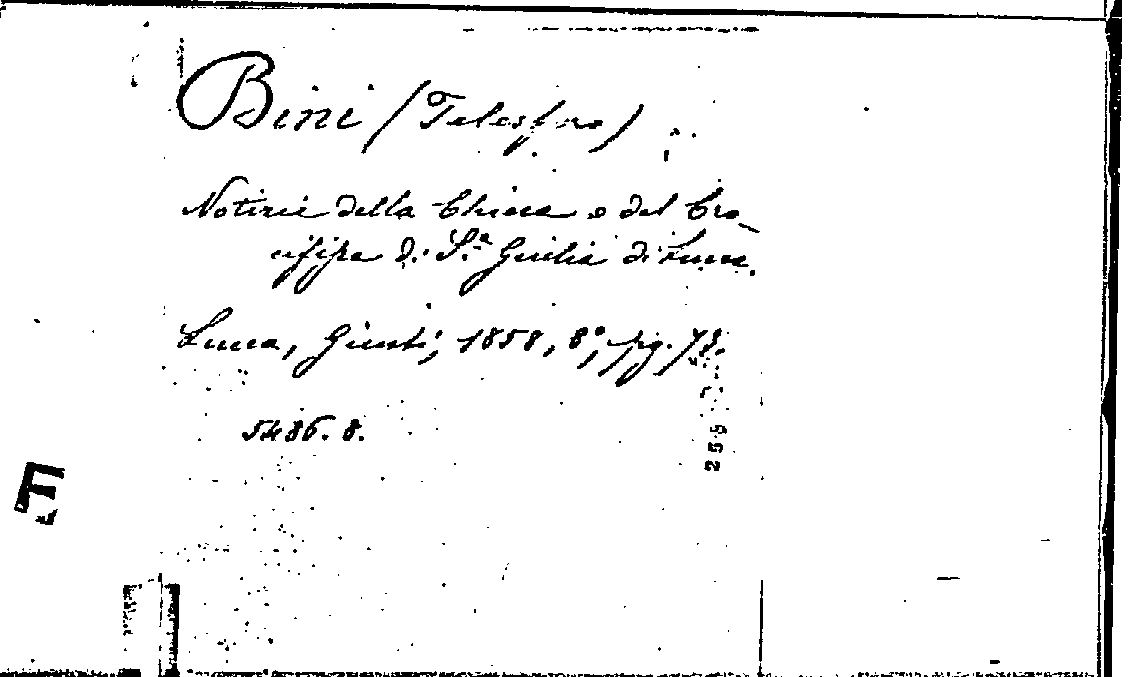 Bini (Telesforo)
Notizie della Chiesa e del Cro-
cifisso di S.ª Giulia di Lucca.
Lucca, Giusti, 1858, 8°, pg. 78.
5486. 8.
F